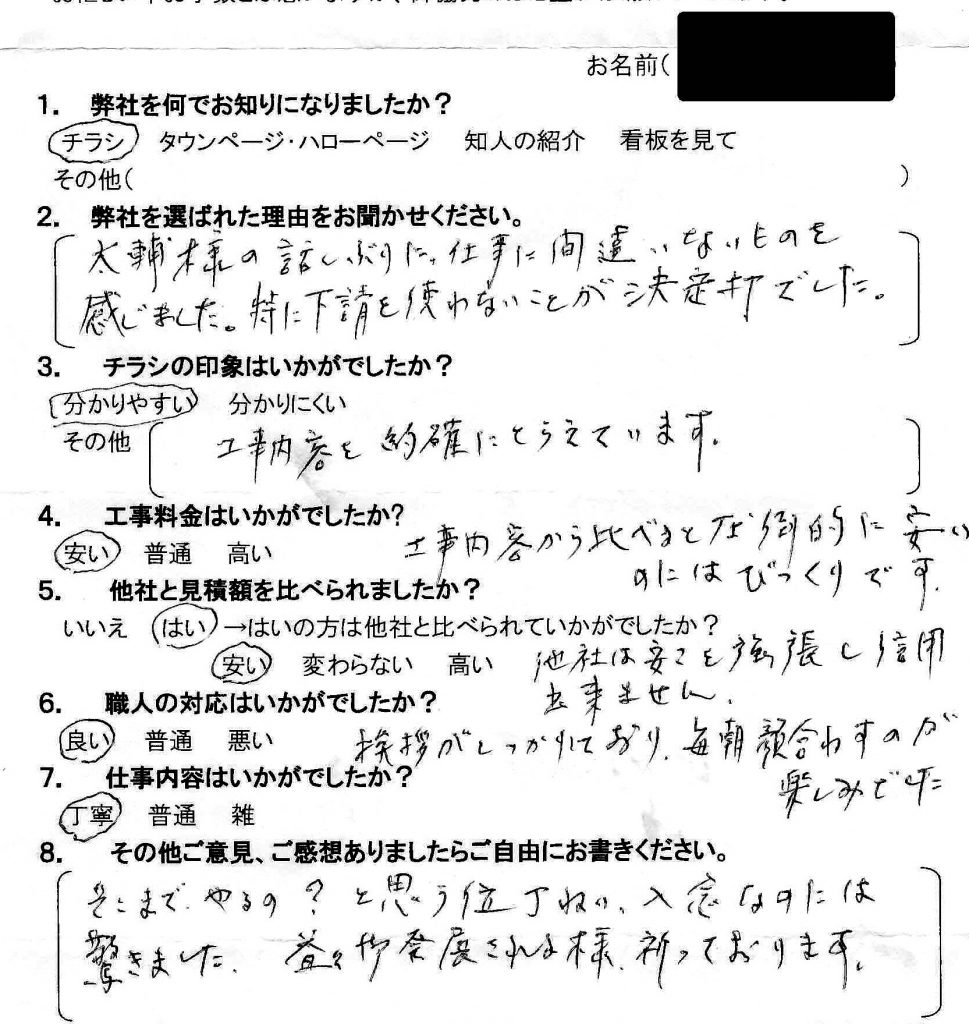 お名前(
1. 弊社を何でお知りになりましたか?
チラシ タウンページ・ハローページ 知人の紹介 看板を見て
その他( )
2. 弊社を選ばれた理由をお聞かせください。
太輔様の話しぶりに、仕事に間違いないものを
感じました。特に下請を使わないことが決定打でした。
3. チラシの印象はいかがでしたか?
分かりやすい 分かりにくい
その他 工事内容を的確にとらえています。
4. 工事料金はいかがでしたか?
安い 普通 高い 工事内容から比べると圧倒的に安い
のにはびっくりです。
5. 他社と見積額を比べられましたか?
いいえ はい →はいの方は他社と比べられていかがでしたか?
安い 変わらない 高い 他社は安さを強張し信用
出来ません。
6. 職人の対応はいかがでしたか?
良い 普通 悪い 挨拶がしっかりしており、毎朝顔合わすのが
楽しみでした
7. 仕事内容はいかがでしたか?
丁寧 普通 雑
8. その他ご意見、ご感想ありましたらご自由にお書きください。
そこまで、やるの?と思う位丁ねい、入念なのには
驚きました。益々御発展される様、祈っております。